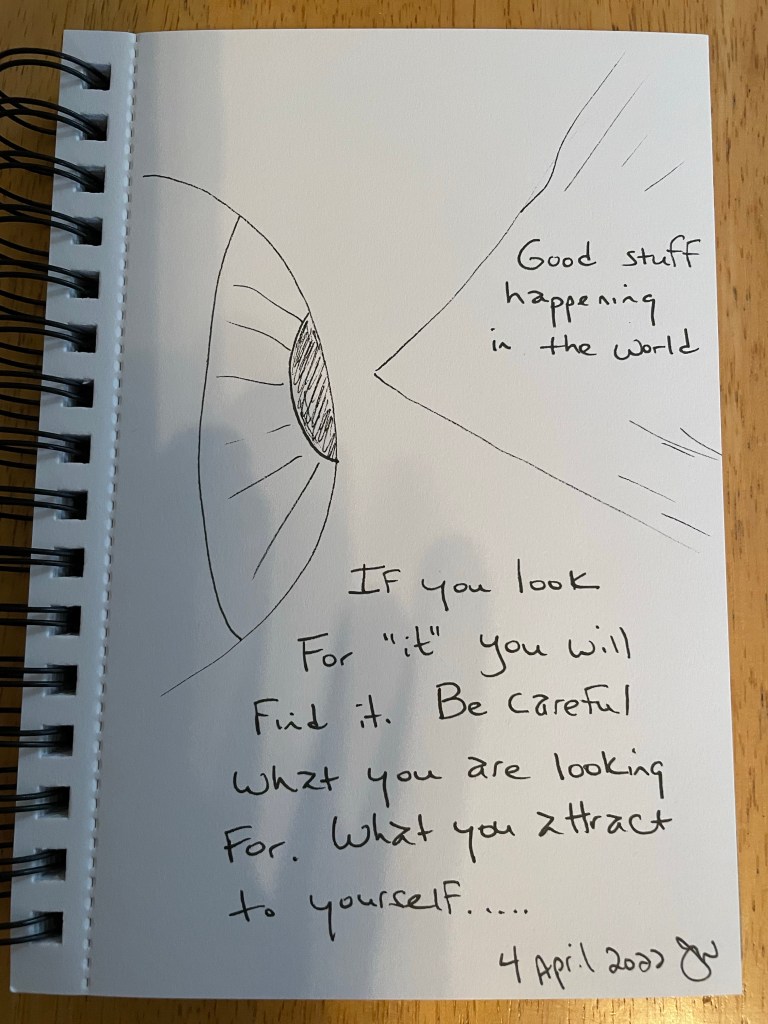 Good stuff
happening
in the world
If you look
For "it" you will
Find it. Be careful
what you are looking
For. What you attract
to yourself.....
4 April 2022